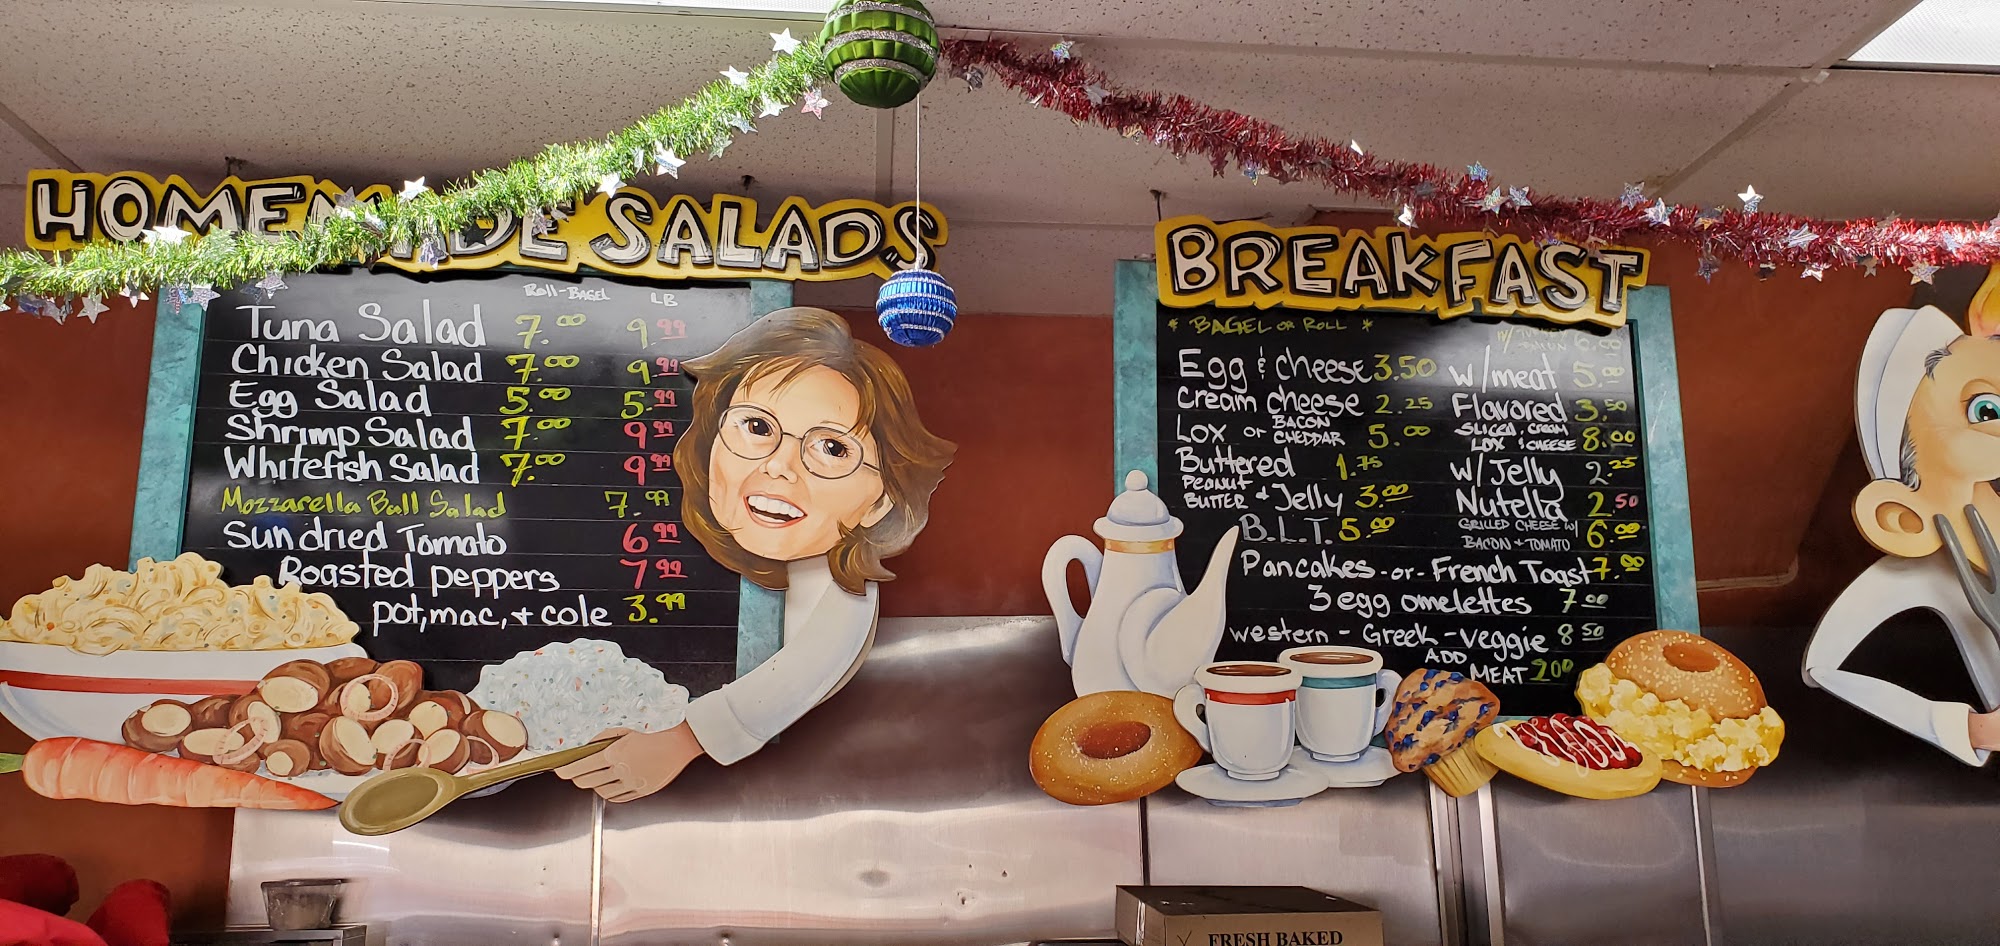 HOMEMADE SALADS
Roll-BAGEL LB
Tuna Salad 7.00 9.99
Chicken Salad 7.00 9.99
Egg Salad 5.00 5.99
Shrimp Salad 7.00 9.99
Whitefish Salad 7.00 9.99
Mozzarella Ball Salad 7.99
Sun dried Tomato 6.99
Roasted peppers 7.99
pot, mac, + cole 3.99
BREAKFAST
* BAGEL OR ROLL *
W/ TURKEY BACON 6.00
Egg & cheese 3.50 W/meat 5.00
Cream cheese 2.25 Flavored 3.50
LOX or BACON CHEDDAR 5.00 SLICED LOX & CREAM CHEESE 8.00
Buttered 1.75 W/Jelly 2.25
PEANUT BUTTER + Jelly 3.00 Nutella 2.50
B.L.T. 5.00 GRILLED CHEESE W/ BACON + TOMATO 6.00
Pancakes -or- French Toast 7.00
3 egg omelettes 7.00
western - Greek - veggie 8.50
ADD MEAT 2.00
FRESH BAKED